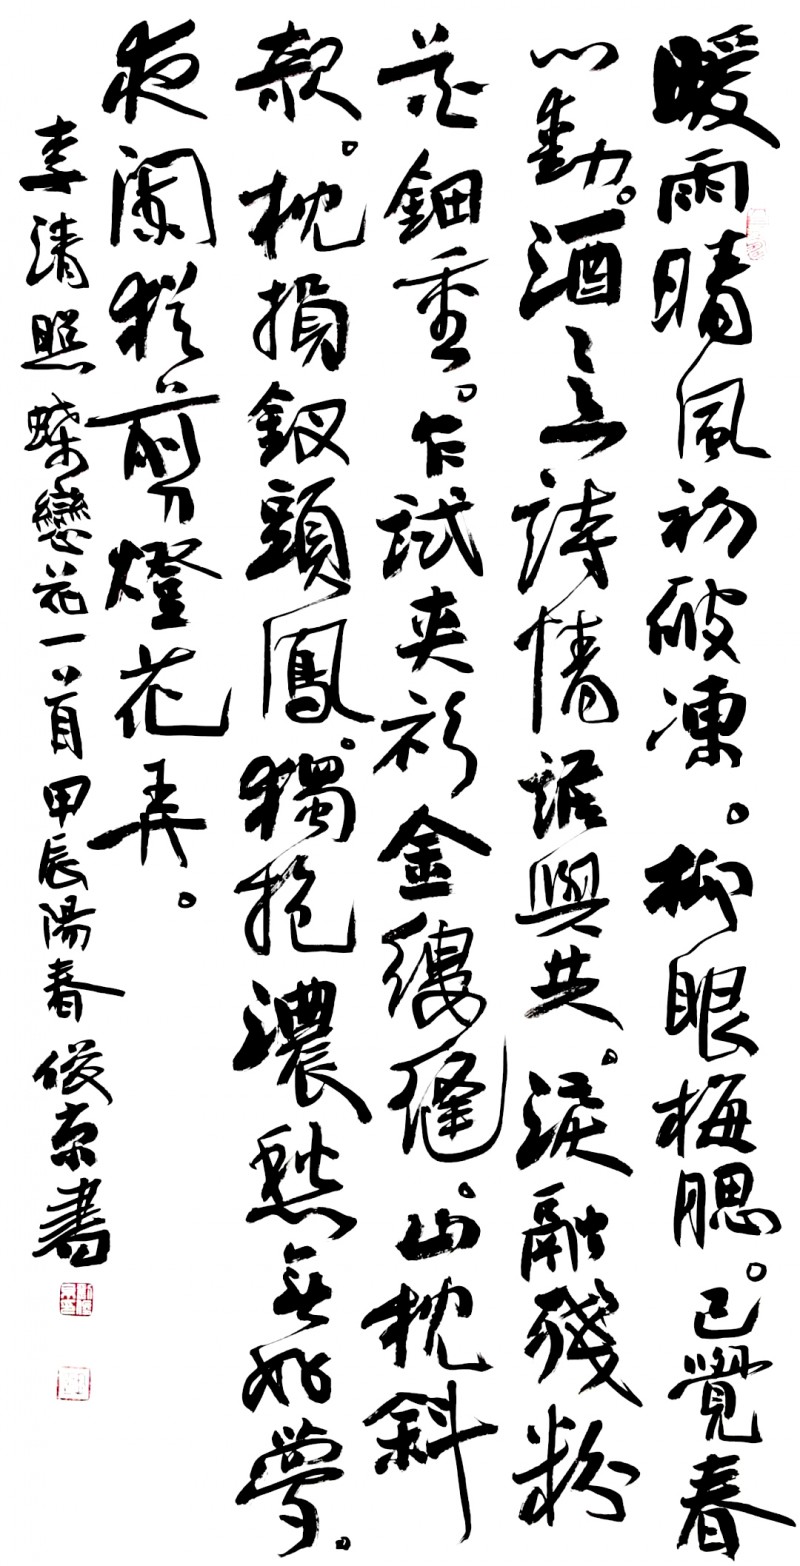 暖雨晴風初破凍。柳眼梅腮。已覺春
心動。酒意詩情誰與共。淚融殘粉
花鈿重。乍試夾衫金縷縫。山枕斜
欹。枕損釵頭鳳。獨抱濃愁無好夢。
夜闌猶剪燈花弄。
李清照蝶戀花一首甲辰陽春俊京書